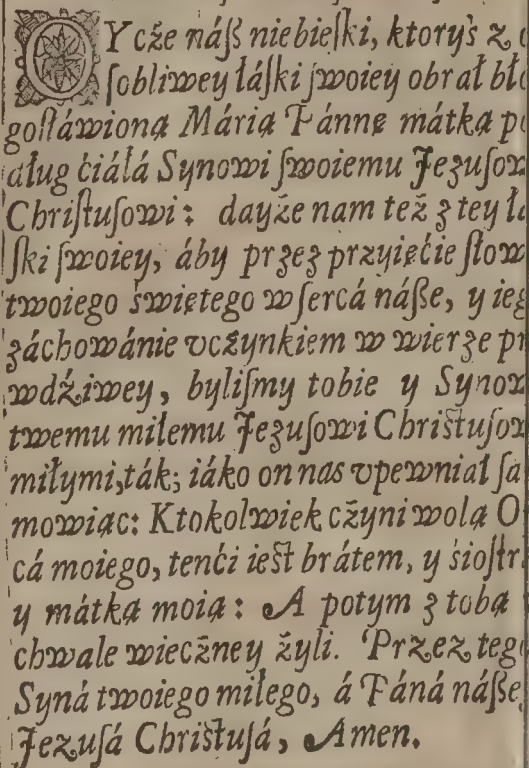 OYcże náſß niebieſki, ktoryś z
ſobliwey łáſki ſwoiey obrał bło
goſłáwioną Márią Pánnę mátką po
dług ćiáłá Synowi ſwoiemu Jezuſow
Chriſtuſowi: dayże nam też z tey łá
ſki ſwoiey, áby przez przyięćie ſłow
twoiego świętego w ſercá náße, y ieg
záchowánie vczynkiem w wierze pr
wdźiwey, byliſmy tobie y Synow
twemu miłemu Jezuſowi Chriſtuſow
miłymi, ták; iáko on nas vpewniał ſa
mowiąc: Ktokolwiek cżyni wolą O
cá moiego, tenći ieſt brátem, y śioſtr
y mátką moią: A potym z tobą
chwale wiecżney żyli. Przez teg
Syná twoiego miłego, á Páná náße
Jezuſá Chriſtuſá, Amen.